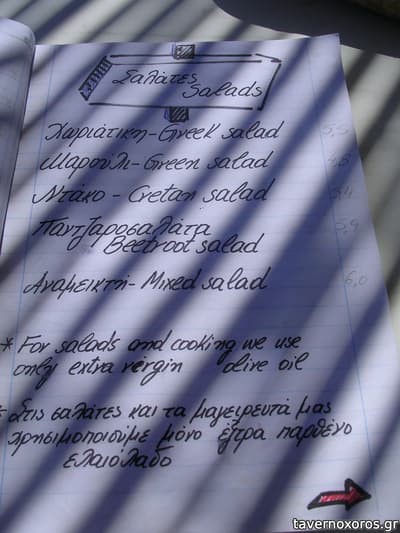 Σαλάτες
Salads
Χωριάτικη - Greek salad
Μαρούλι - Green salad
Ντάκο - Cretan salad
Παντζαροσαλάτα
Beetroot salad
Αναμεικτή - Mixed salad 6,0
* For salads and cooking we use
only extra virgin olive oil
* Στις σαλάτες και τα μαγειρευτά μας
χρησιμοποιούμε μόνο έξτρα παρθένο
ελαιόλαδο
tavernoxoros.gr